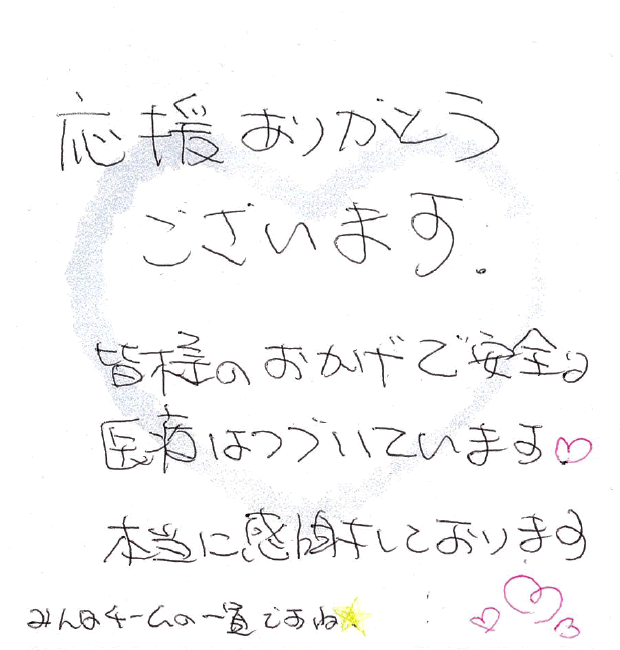 応援ありがとう
ございます.
皆様のおかげで安全な
医療はつづいています♡
本当に感謝しております
みんなチームの一員ですね